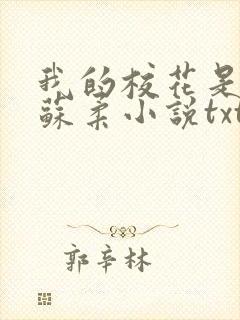 我的校花是
蘇柔小説txt
郭辛林